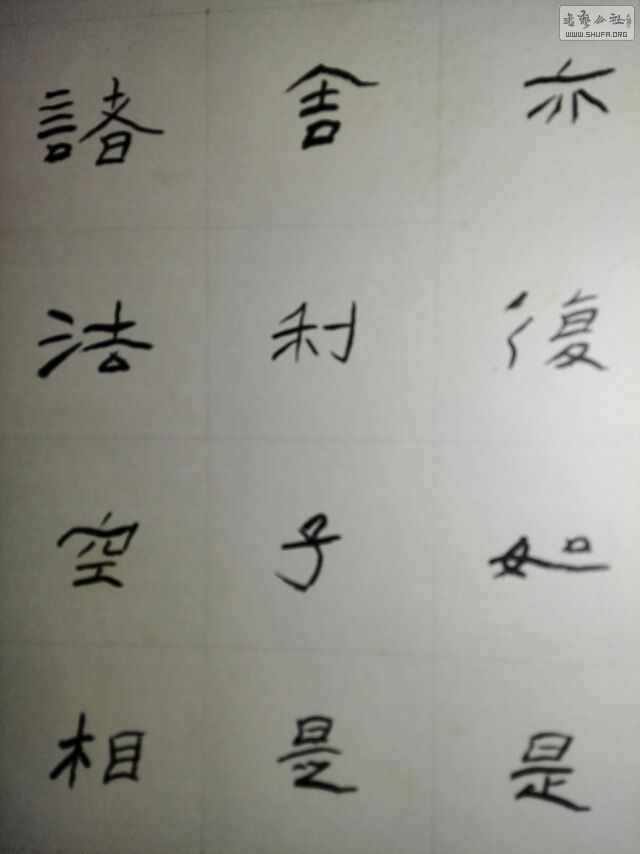 亦復如是
舍利子是
諸法空相
书艺公社
WWW.SHUFA.ORG